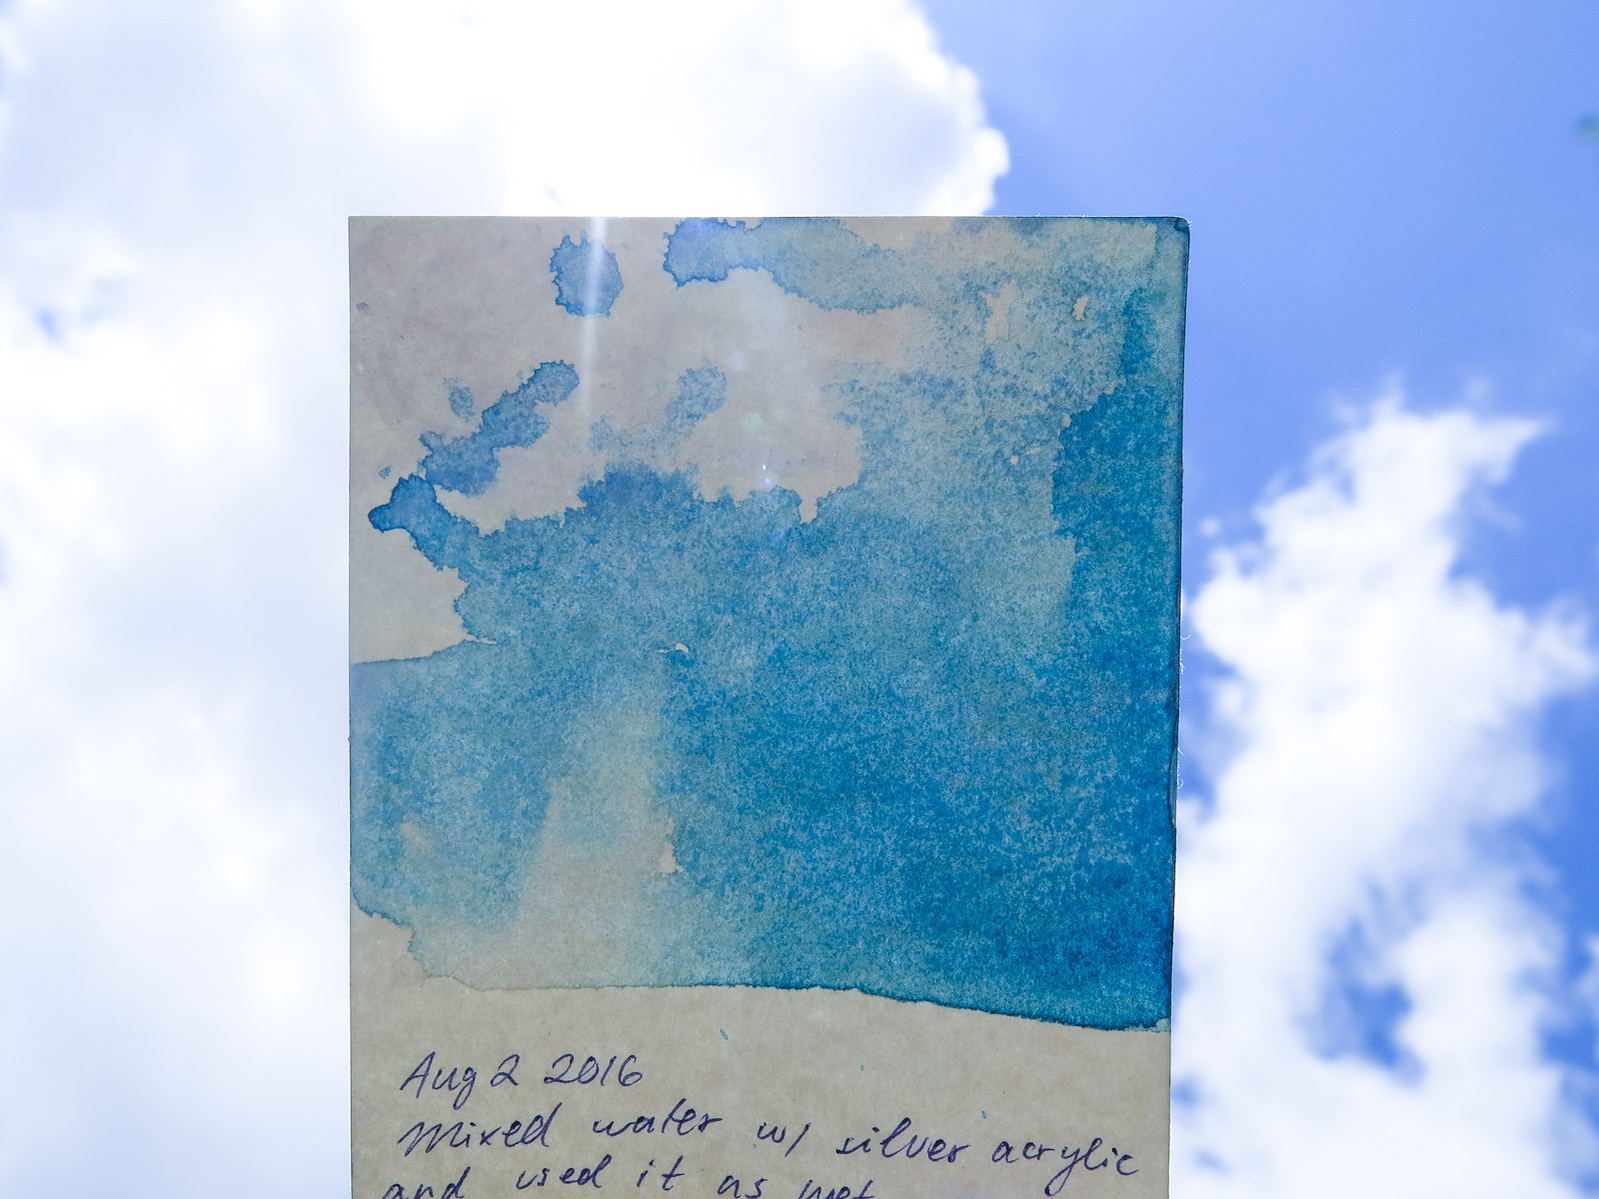 Aug 2 2016
Mixed water w/ silver acrylic
and used it as wet